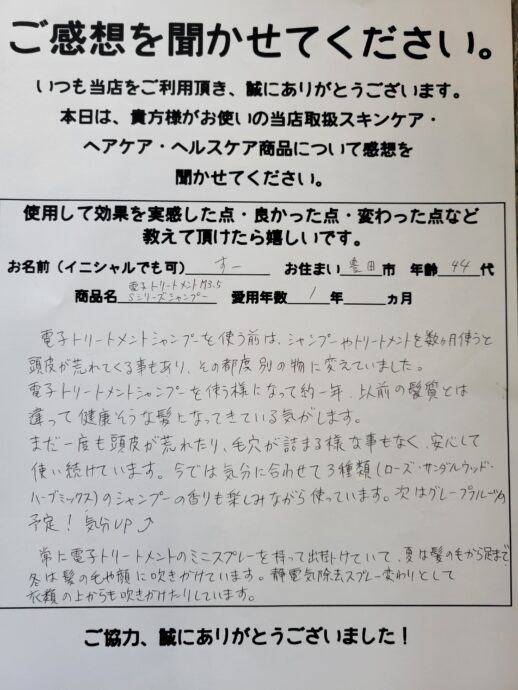 ご感想を聞かせてください。
いつも当店をご利用頂き、誠にありがとうございます。
本日は、貴方様がお使いの当店取扱スキンケア・
ヘアケア・ヘルスケア商品について感想を
聞かせてください。
使用して効果を実感した点・良かった点・変わった点など
教えて頂けたら嬉しいです。
お名前（イニシャルでも可） すー お住まい 豊田 市 年齢 44 代
商品名 電子トリートメントM3.5 Sシリーズシャンプー 愛用年数 1 年 ヵ月
電子トリートメントシャンプーを使う前は、シャンプーやトリートメントを数ヶ月使うと
頭皮が荒れてくる事もあり、その都度別の物に変えていました。
電子トリートメントシャンプーを使う様になって約一年、以前の髪質とは
違って健康そうな髪になってきている気がします。
まだ一度も頭皮が荒れたり、毛穴が詰まる様な事もなく、安心して
使い続けています。今では気分に合わせて3種類（ローズ・サンダルウッド・
ハーブミックス）のシャンプーの香りも楽しみながら使っています。次はグレープフルーツの
予定！気分UP
常に電子トリートメントのミニスプレーを持って出掛けていて、夏は髪のもから足まで
冬は髪の毛や顔に吹きかけています。静電気除去スプレー変わりとして
衣類の上からも吹きかけたりしています。
ご協力、誠にありがとうございました！